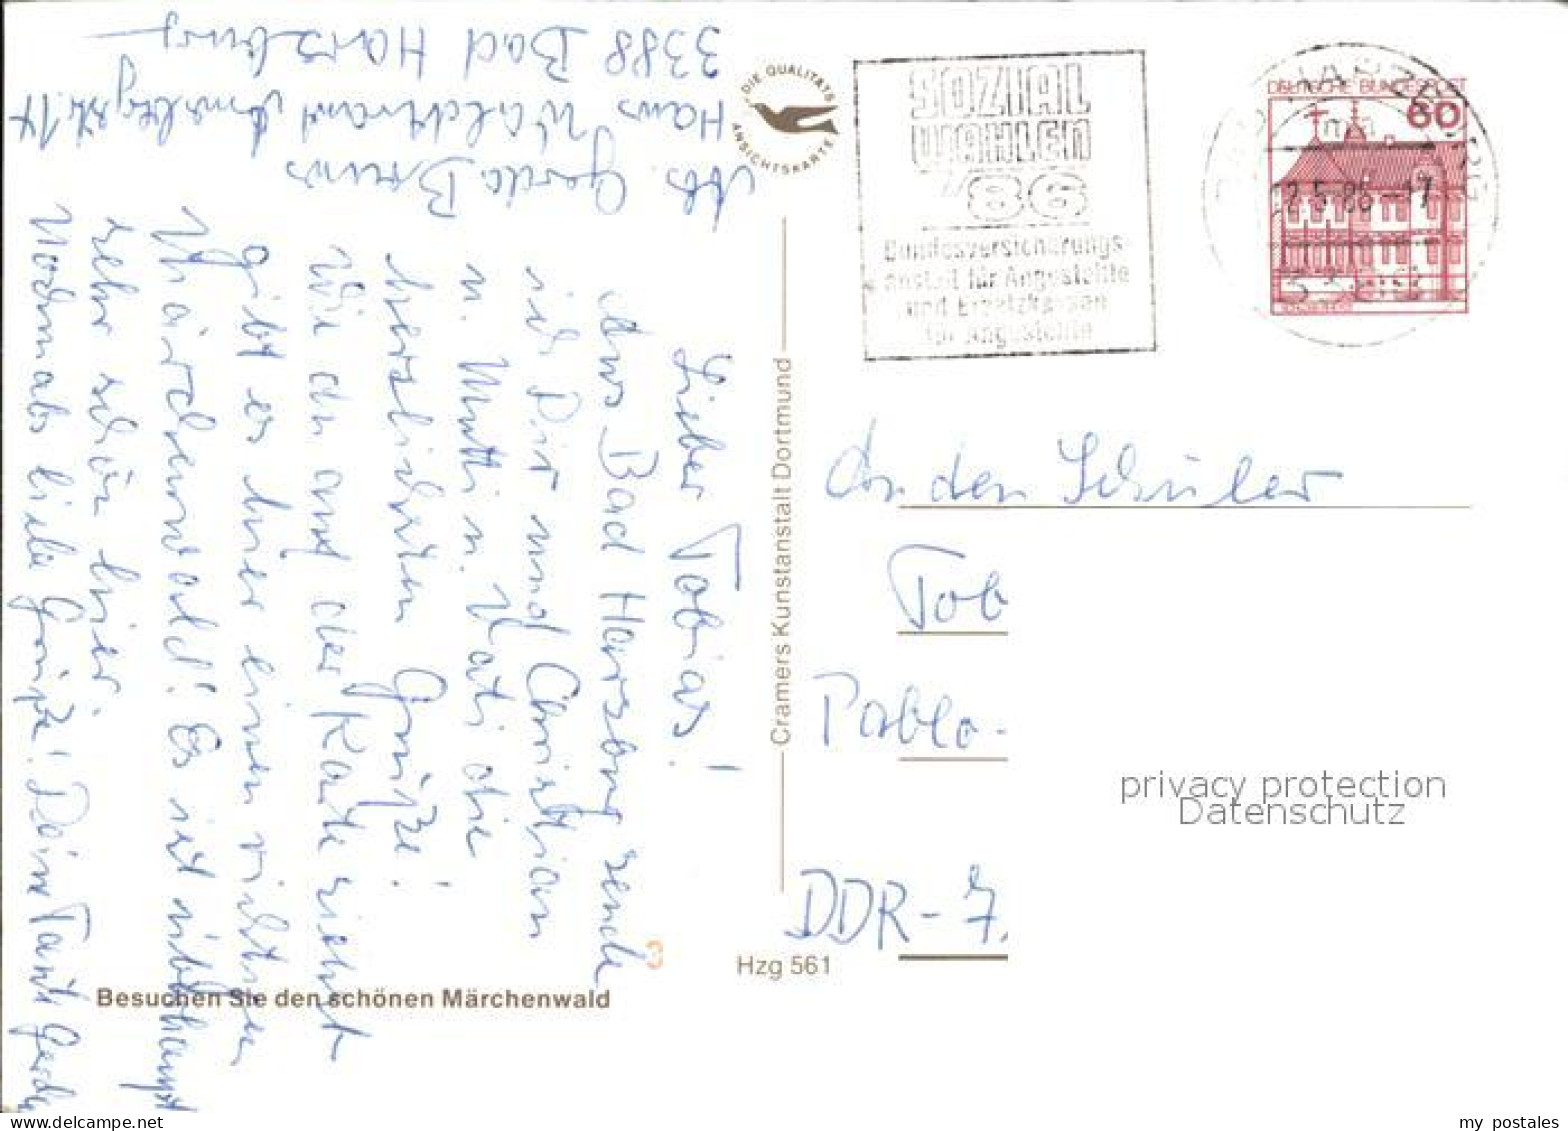 Abs. Gerda Bruns
Haus Waldtraut
3388 Bad Harzburg
Lieber Tobias!
Aus Bad Harzburg sende
ich Dir und Christian
u. Mutti u. Vati die
herzlichsten Grüße!
Wie du auf der Karte siehst
gibt es hier einen richtigen
Märchenwald! Es ist überhaupt
sehr schön hier.
Nochmals liebe Grüße! Deine Tante Gerda
Besuchen Sie den schönen Märchenwald
DIE QUALITÄTS
ANSICHTSKARTE
Cramers Kunstanstalt Dortmund
Hzg 561
SOZIAL
WAHLEN
'86
Bundesversicherungs-
anstalt für Angestellte
und Ersatzkassen
für Angestellte
DEUTSCHE BUNDESPOST
60
An den Schüler
Tob
Pablo-
DDR-7
privacy protection
Datenschutz
my postales
www.delcampe.net